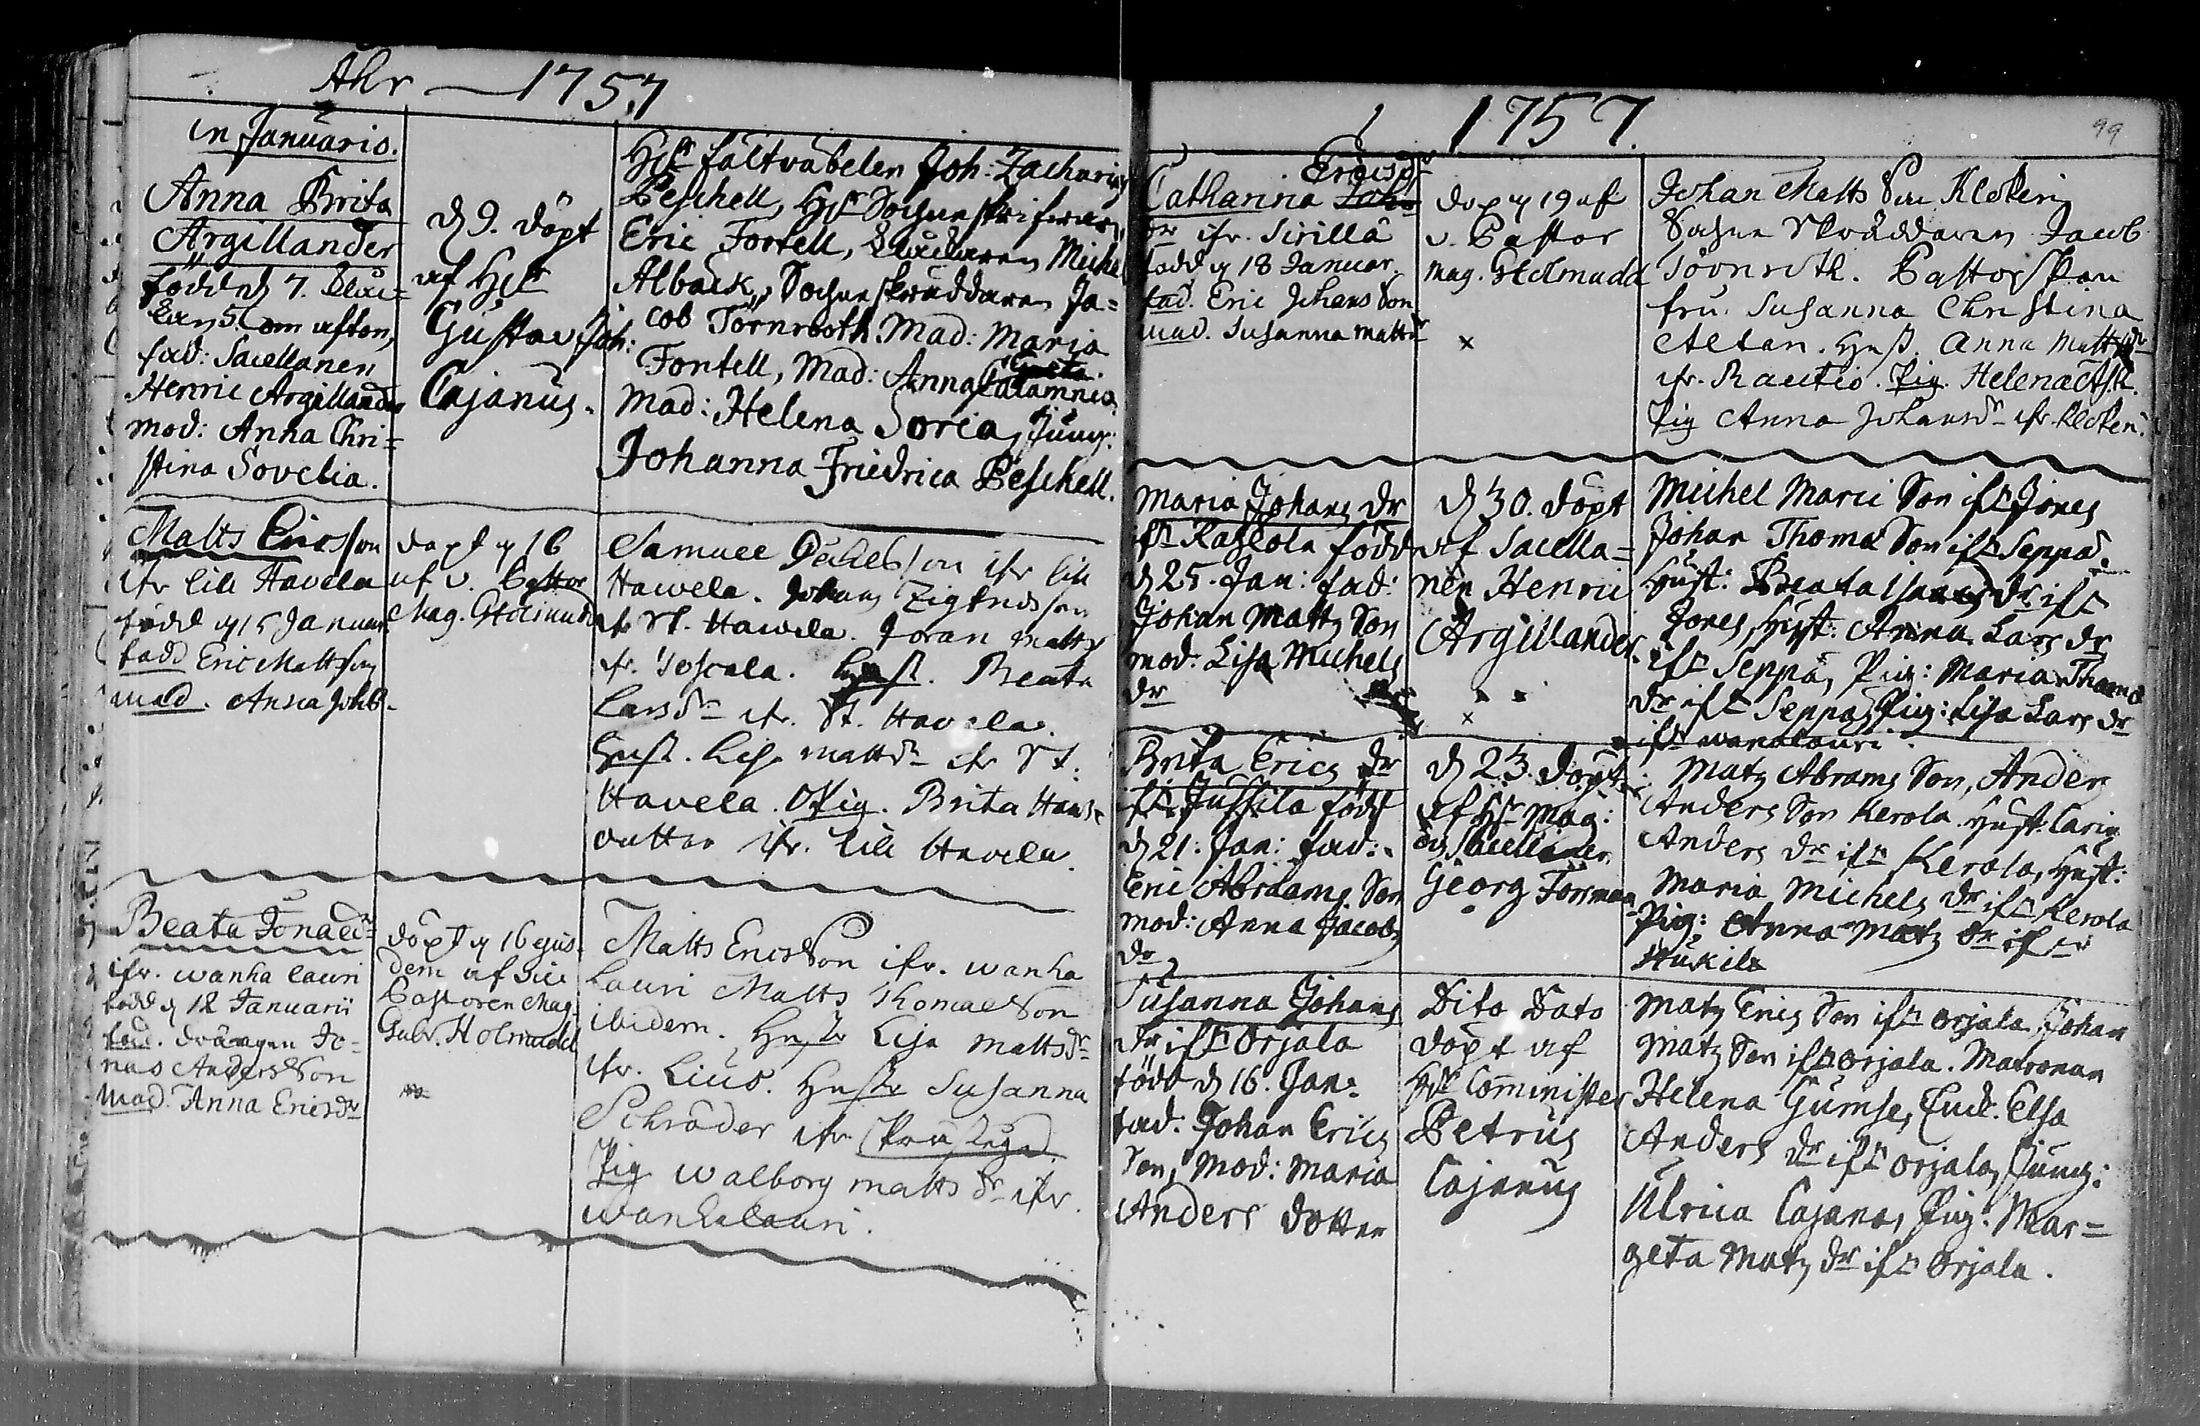 Åhr — 1757
in Januario.
Anna Brita
Argillander
född d 7.
5 om afton,
fad: Sacellanen
Henric Argillander
mod: Anna Chri=
stina Sovelia.
d 9. döpt
af HE
Gustav Joh:
Cajanus.
HE fältväbelen Joh: Zacharias
Peschell, HE Sockneskrifvaren,
Eric Fortell, Michel
Alback, Sockneskräddaren Ja=
cob Törnrooth Mad: Maria
Fontell, Mad: Anna Greta
Calamnia
Mad: Helena Soria, Jung:
Johanna Friedrica Peschell.
Matts Ericsson
ifr lill Havela
född d 15 Januar
fadr Eric Mattsson
mod. Anna Johb
döpt d 16
af v. Pastor
Mag. Holmudd
Samuel ifr lill
Hawela. Johan Zigfridsson
ifr St. Hawela. Joran Matts
ifr. Toskala. Hust. Beata
Larsdr ifr. St. Havela.
Hust. Lisa Mattsdr ifr St.
Havela. Pig. Brita Hans
dotter ifr. lill Havela.
Beata Jonaedr
ifr. wanha lauri
född d 12 Januarii
fad. drängen Jo-
nas Andersson
Mod. Anna Ericsdr
döpt d 16 ejus-
dem af vice
Pastoren Mag.
Gabr. Holmudd
Matts Ericsson ifr. wanha
lauri Matts Thomaeson
ibidem. Hustr Lisa Mattsdr
ifr. Lius. Hustr Susanna
Schrader ifr.
Pig Walborg mattsdr ifr.
wanhalauri.
1757.
99
Ericsdr
Catharina Joha
dr ifr. Sirilla
född d 18 Januar.
fad. Eric Johansson
mod. Susanna mattsdr
döp d 19 af
v. Pastor
mag. Holmudd
x
Johan Matts Son Klokkeri
Sockne Skräddaren Jacob
Törnroth. Pastorskan
fru. Susanna Christina
Hust. Anna Mattsdr
ifr. Rautio. Pig. Helena
Pig Anna Johansdr ifr. Klokken.
Maria Johans dr
ifr Kassola född
d 25. Jan: fad:
Johan Matts Son
mod: Lisa Michels
dr
d 30. döpt
af Sacella=
nen Henric
Argillander.
x
Michel Marci Son ifr Jones
Johan Thomas Son ifr Seppä.
Hust: Beata Isaacs dr ifr
Jones, Hust: Anna Lars dr
ifr Seppä, Pig: Maria Thomas
dr ifr Seppä, Pig: Lisa Lars dr
ifr wanalauri.
Brita Erics dr
ifr Jussila född
d 21. Jan: fad:
Eric Abrahams Son
mod: Anna Jacobs
dr
d 23. döpt
af Hr Mag:
och Sacellanen
Georg Forsman
Mats Abrams Son, Anders
Anders Son Kerola. Hust: Carin
Anders dr ifr Kerola, Hust:
Maria Michels dr ifr Kerola
Pig: Anna Mats dr ifr
Hukila
Susanna Johans
dr ifr Orjala
född d 16. Jan.
fad. Johan Erics
Son, Mod: Maria
Anders dotter
Dito Dato
döpt af
HE Comminister
Petrus
Cajanus
Mats Erics Son ifr Orjala Johan
Mats Son ifr Orjala. Matronan
Helena Gumse, Enck. Elsa
Anders dr ifr Orjala, Jung:
Ulrica Cajana, Pig. Mar=
geta Mats dr ifr Orjala.